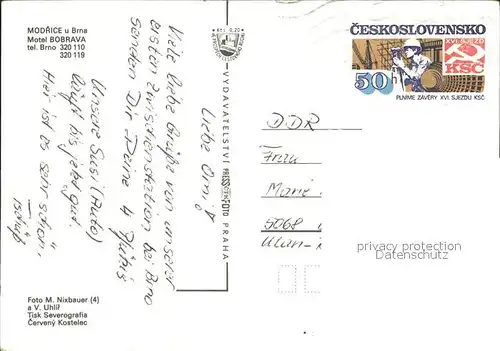 MODŘICE u Brna
Motel BOBRAVA
tel. Brno 320 110
320 119
Liebe Omi!
Viele liebe Grüße von unserer
ersten Zwischenstation bei Brno
senden Dir Deine 4
Unsere Susi (Auto)
läuft bis jetzt gut.
Hier ist es sehr schön,
Tschüß
Foto M. Nixbauer (4)
a V. Uhlíř
Tisk Severografia
Červený Kostelec
VYDAVATELSTVÍ PRESSFOTO PRAHA
Kčs 0,20
ČESKOSLOVENSKO
XVI. SJEZD
KSČ
50 h
PLNÍME ZÁVĚRY XVI. SJEZDU KSČ
DDR
Frau
Marie
5068
privacy protection
Datenschutz